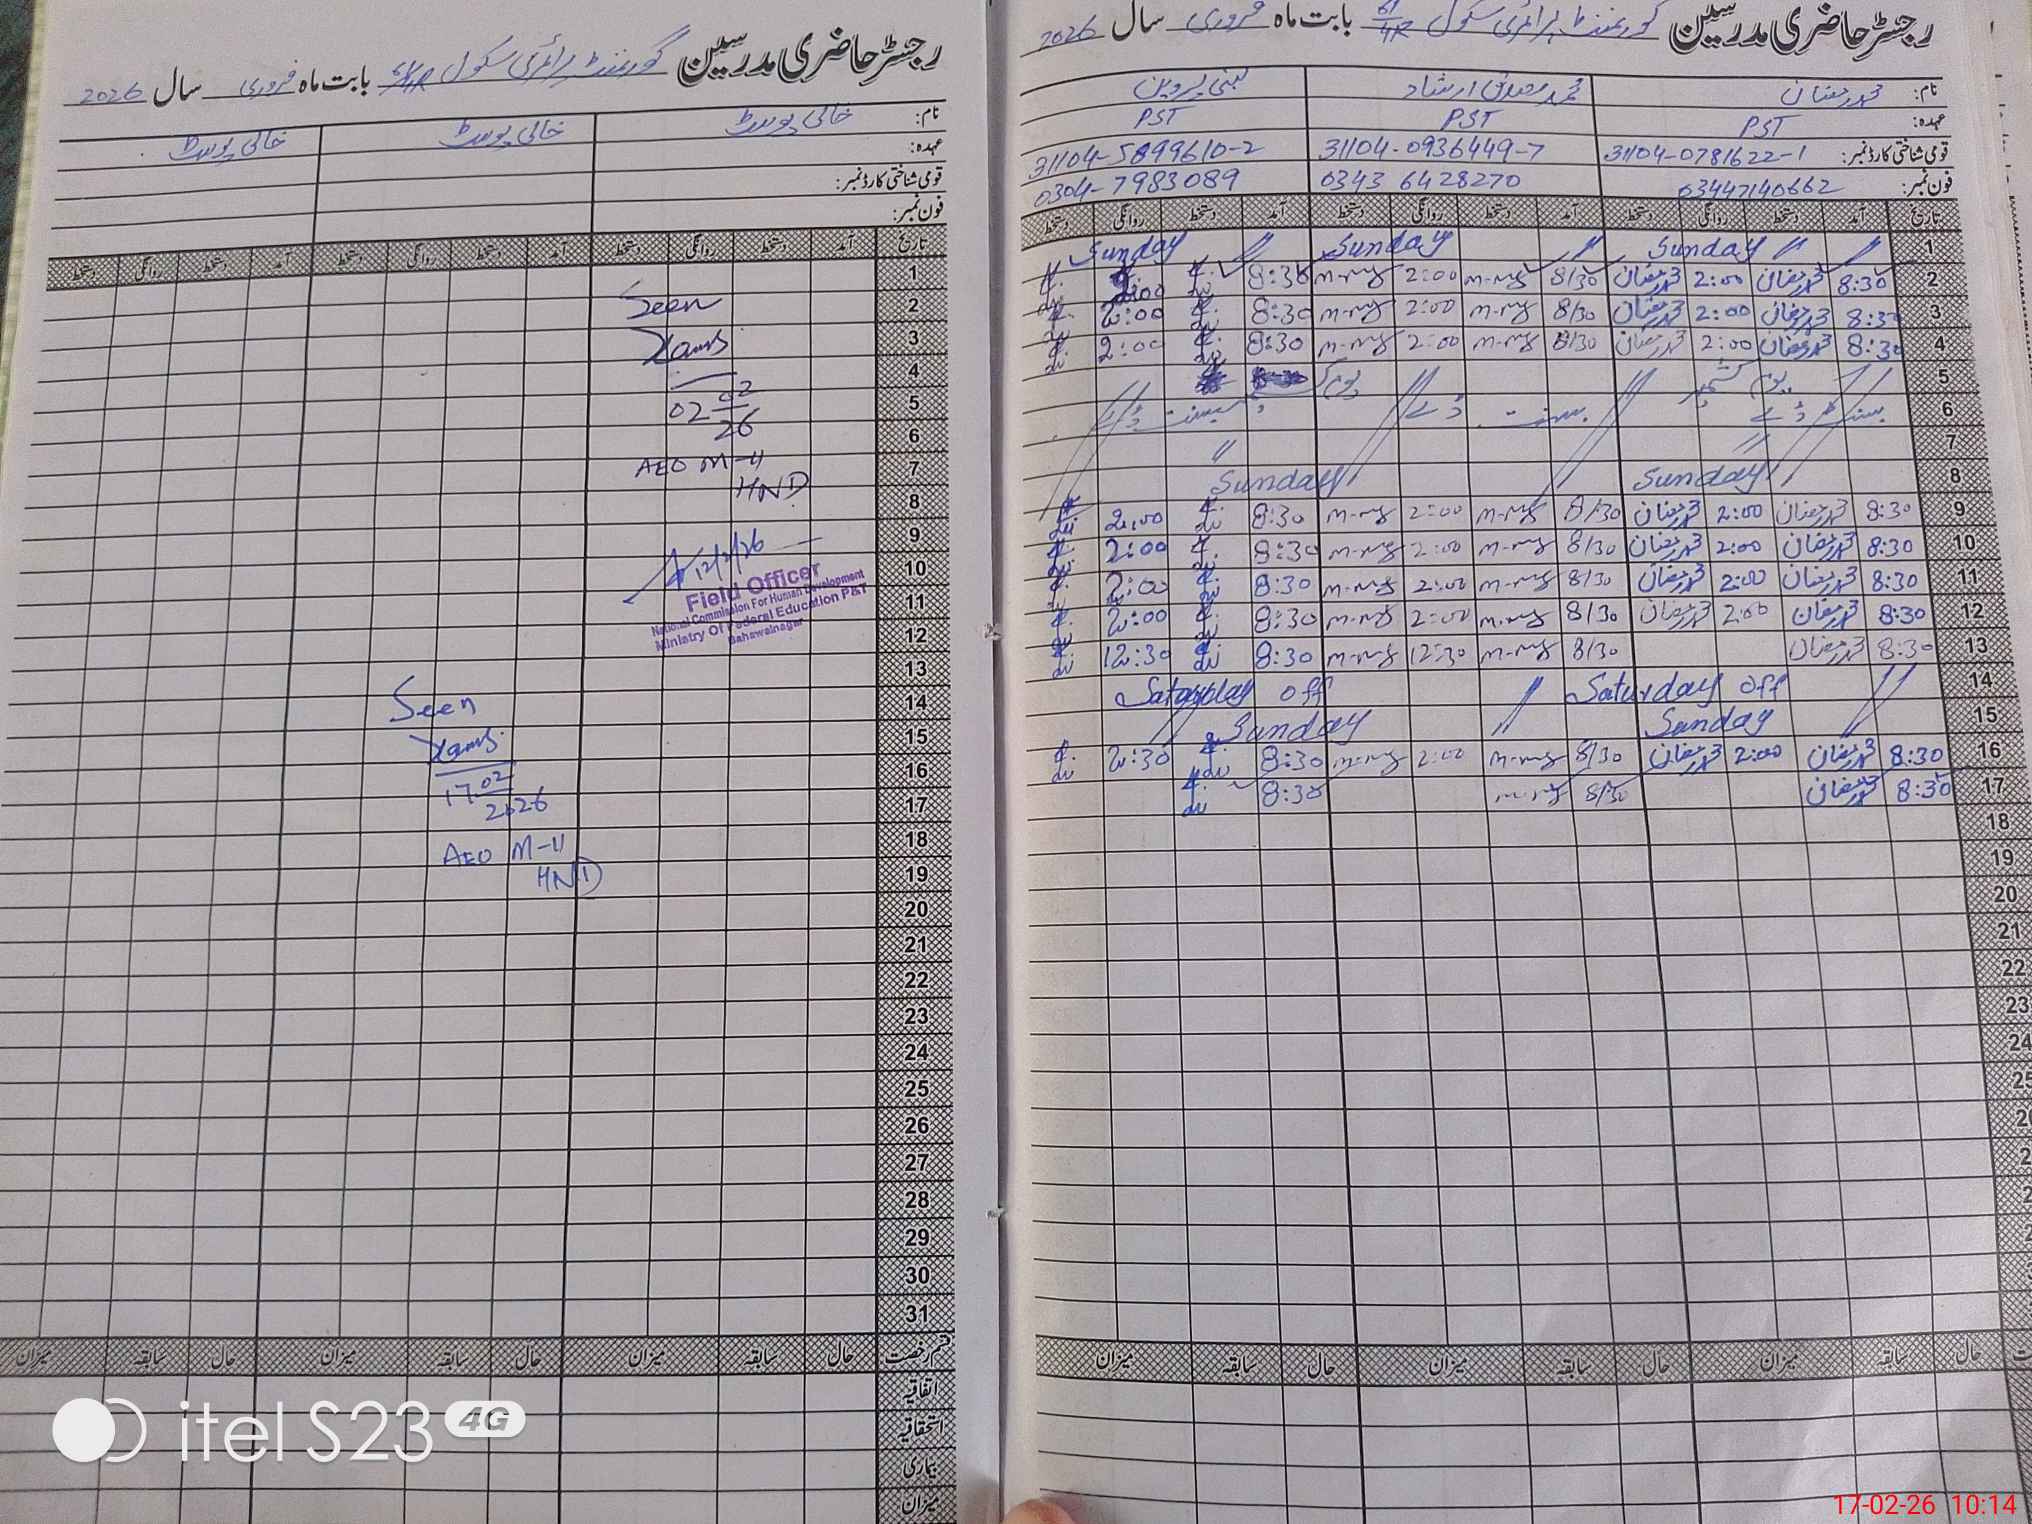 رجسٹر حاضری مدرسین گورنمنٹ پرائمری سکول 61/4R بابت ماہ فروری سال 2026
نام: محمد رمضان محمد صدیق ارشاد لبنی پروین
عہدہ: PST PST PST
قومی شناختی کارڈ نمبر: 31104-0781622-1 31104-0936449-7 31104-5899610-2
فون نمبر: 03447140662 0343 6428270 0304-7983089
تاریخ آمد دستخط روانگی دستخط آمد دستخط روانگی دستخط آمد دستخط روانگی دستخط
1 Sunday Sunday Sunday
2 8:30 محمد رمضان 2:00 محمد رمضان 8/30 2:00 8:30 2:00
3 8:30 محمد رمضان 2:00 محمد رمضان 8/30 2:00 8:30 2:00
4 8:30 محمد رمضان 2:00 محمد رمضان 8/30 2:00 8:30 2:00
5 یوم کشمیر یوم
6 بسنت ڈے بسنت ڈے بسنت ڈے
7
8 Sunday Sunday
9 8:30 محمد رمضان 2:00 محمد رمضان 8/30 2:00 8:30 2:00
10 8:30 محمد رمضان 2:00 محمد رمضان 8/30 2:00 8:30 2:00
11 8:30 محمد رمضان 2:00 محمد رمضان 8/30 2:00 8:30 2:00
12 8:30 محمد رمضان 2:00 محمد رمضان 8/30 2:00 8:30 2:00
13 8:30 محمد رمضان 8/30 12:30 8:30 12:30
14 Saturday off Saturday off
15 Sunday Sunday
16 8:30 محمد رمضان 2:00 محمد رمضان 8/30 2:00 8:30 2:30
17 8:30 محمد رمضان 8/30 8:30
18
19
20
21
22
23
24
25
حال سابقہ میزان حال سابقہ میزان حال سابقہ میزان
رجسٹر حاضری مدرسین گورنمنٹ پرائمری سکول 61/4R بابت ماہ فروری سال 2026
نام: خالی پوسٹ خالی پوسٹ خالی پوسٹ
عہدہ:
قومی شناختی کارڈ نمبر:
فون نمبر:
تاریخ آمد دستخط روانگی دستخط آمد دستخط روانگی دستخط آمد دستخط روانگی دستخط
1
2 Seen
3
4
5 02 02
6 26
7 AEO M-II
8 HND
9 12/2/26
10 Field Officer
11 National Commission For Human Development
12 Ministry Of Federal Education P&T
Bahawalnagar
13
14 Seen
15
16 17.02
17 2026
18 AEO M-II
19 HND
20
21
22
23
24
25
26
27
28
29
30
31
قسم رخصت حال سابقہ میزان حال سابقہ میزان حال سابقہ میزان
اتفاقیہ
استحقاقیہ
بیماری
میزان
itel S23 4G
17-02-26 10:14